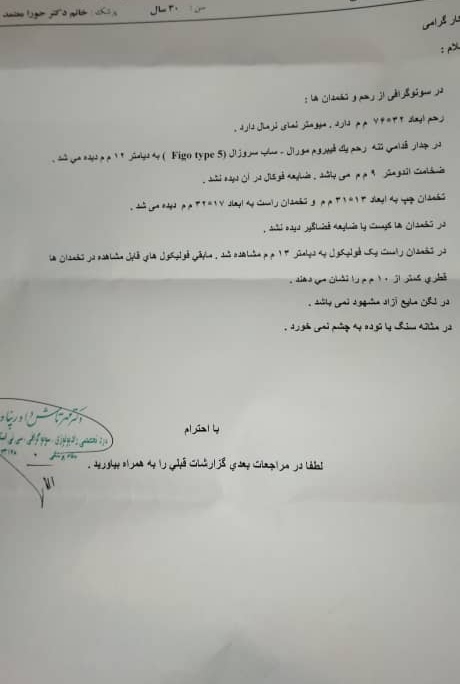 سن : ۳۰ سال پزشک : خانم دکتر حورا معتمد
کار گرامی
لام :
در سونوگرافی از رحم و تخمدان ها :
رحم ابعاد ۳۲*۷۶ م م دارد . میومتر نمای نرمال دارد .
در جدار قدامي تنه رحم یك فیبروم مورال - ساب سروزال (Figo type 5 ) به دیامتر ۱۲ م م دیده مي شد .
ضخامت اندومتر ۹ م م می باشد . ضایعه فوکال در آن دیده نشد .
تخمدان چپ به ابعاد ۱۳*۳۱ م م و تخمدان راست به ابعاد ۱۷*۳۲ م م دیده می شد .
در تخمدان ها کیست یا ضایعه فضاگیر دیده نشد .
در تخمدان راست یک فولیکول به دیامتر ۱۳ م م مشاهده شد . مابقي فولیکول هاي قابل مشاهده در تخمدان ها
قطري کمتر از ۱۰ م م را نشان مي دهند .
در لگن مایع آزاد مشهود نمی باشد .
در مثانه سنگ یا توده به چشم نمی خورد .
با احترام
لطفا در مراجعات بعدي گزارشات قبلي را به همراه بیاورید .